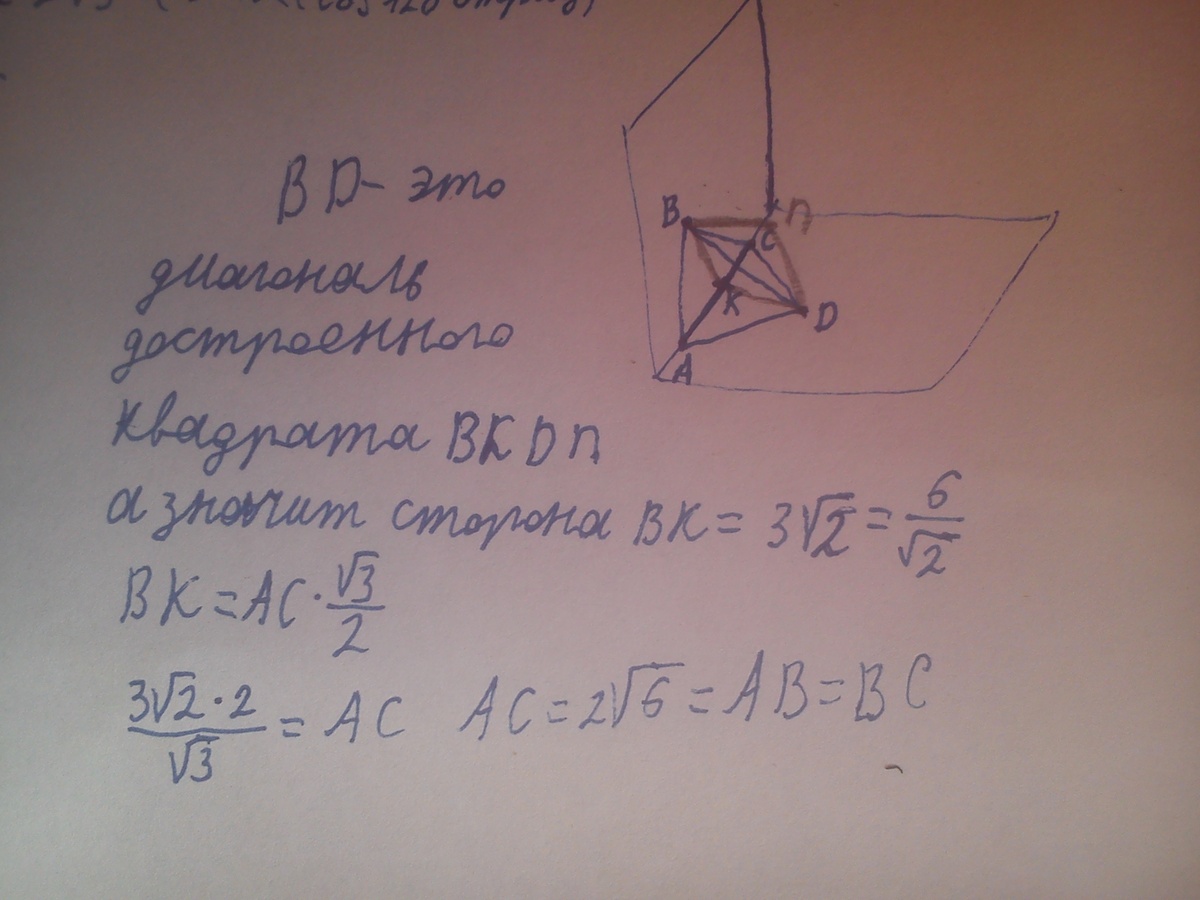 B D - это
диагональ
достроенного
квадрата BKDП
а значит сторона BK = 3√2 = 6/√2
BK = AC · √3/2
3√2 · 2/√3 = AC AC = 2√6 = AB = BC
B
П
C
K
D
A